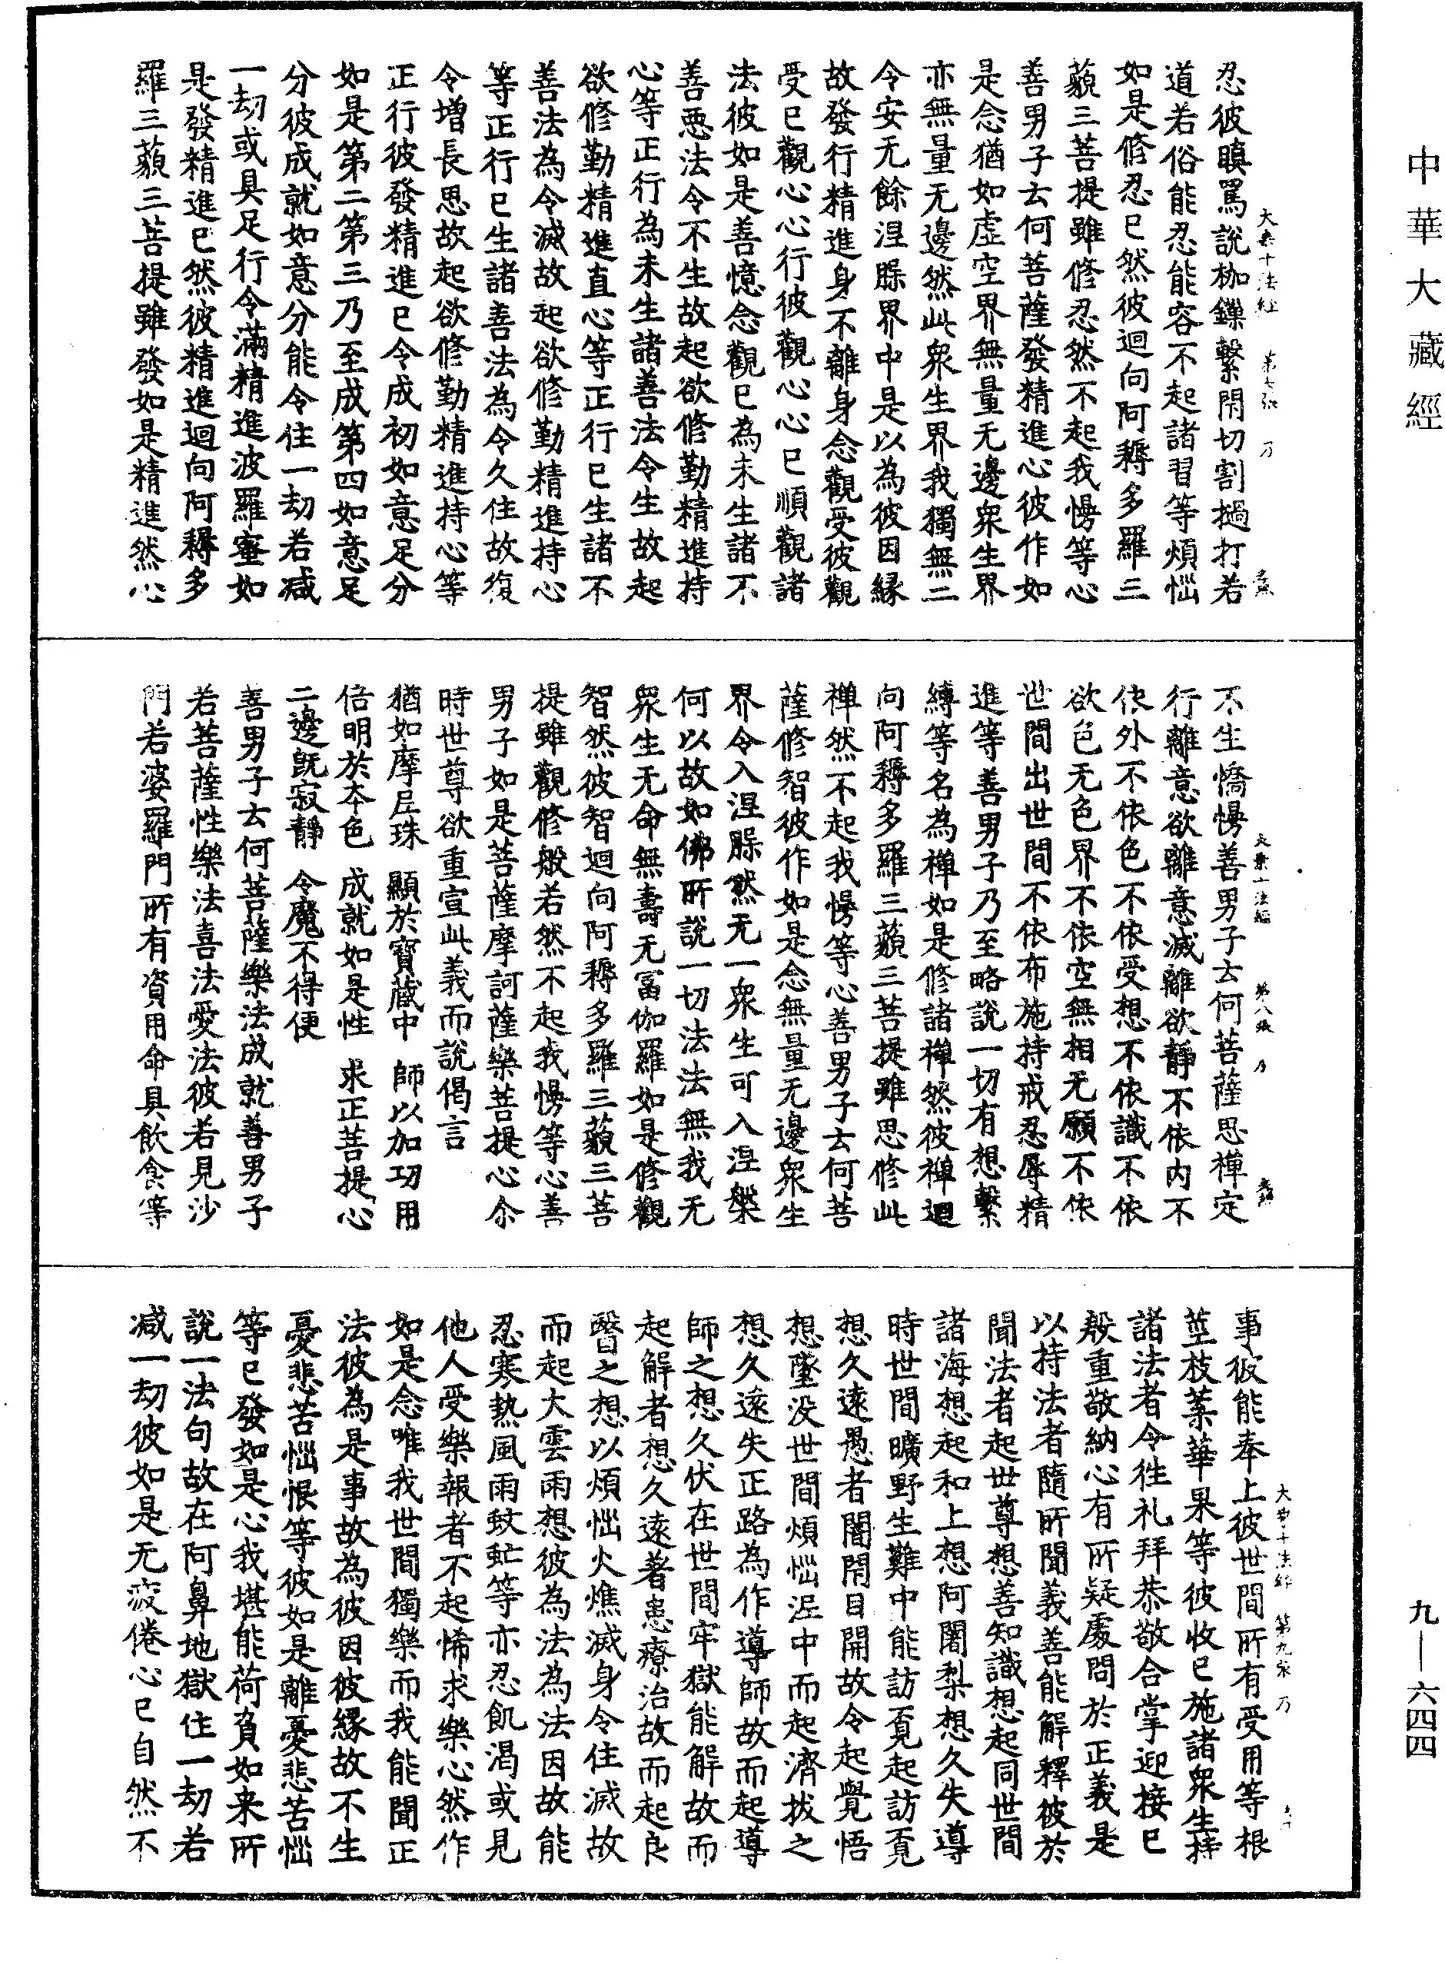 中華大藏經
忍彼瞋罵說枷鏁繫閇切割撾打若
道若俗能忍能容不起諸習等煩惱
如是修忍已然彼迴向阿耨多羅三
藐三菩提雖修忍然不起我慢等心
善男子云何菩薩發精進心彼作如
是念猶如虛空界無量无邊衆生界
亦無量无邊然此衆生界我獨無二
令安无餘涅槃界中是以為彼因緣
故發行精進身不離身念觀受彼觀
受已觀心心行彼觀心心已順觀諸
法彼如是善憶念觀已為未生諸不
善惡法令不生故起欲修勤精進持
心等正行為未生諸善法令生故起
欲修勤精進直心等正行已生諸不
善法為令滅故起欲修勤精進持心
等正行已生諸善法為令久住故復
令增長思故起欲修勤精進持心等
正行彼發精進已令成初如意足分
如是第二第三乃至成第四如意足
分彼成就如意分能令住一劫若減
一劫或具足行令滿精進波羅蜜如
是發精進已然彼精進迴向阿耨多
羅三藐三菩提雖發如是精進然心
大乘十法經 第七張 乃
不生憍慢善男子云何菩薩思禪定
行離意欲離意滅離欲靜不依內不
依外不依色不依受想不依識不依
欲色无色界不依空無相无願不依
世間出世間不依布施持戒忍辱精
進等善男子乃至略說一切有想繫
縛等名為禪如是修諸禪然彼禪迴
向阿耨多羅三藐三菩提雖思修此
禪然不起我慢等心善男子云何菩
薩修智彼作如是念無量无邊衆生
界令入涅槃然无一衆生可入涅槃
何以故如佛所說一切法法無我无
衆生无命無壽无富伽羅如是修觀
智然彼智迴向阿耨多羅三藐三菩
提雖觀修般若然不起我慢等心善
男子如是菩薩摩訶薩樂菩提心尒
時世尊欲重宣此義而說偈言
猶如摩尼珠 顯於寶藏中 師以加功用
倍明於本色 成就如是性 求正菩提心
二邊旣寂靜 令魔不得便
善男子云何菩薩樂法成就善男子
若菩薩性樂法喜法愛法彼若見沙
門若婆羅門所有資用命具飲食等
大乘十法經 第八張 乃
事彼能奉上彼世間所有受用等根
莖枝葉華果等彼收已施諸衆生持
諸法者令徃礼拜恭敬合掌迎接已
殷重敬納心有所疑處問於正義是
以持法者隨所聞義善能解釋彼於
聞法者起世尊想善知識想起同世間
諸海想起和上想阿闍梨想久失導
時世間曠野生難中能訪覔起訪覔
想久遠愚者闇閇目開故令起覺悟
想墜没世間煩惱泥中而起濟拔之
想久遠失正路為作導師故而起導
師之想久伏在世間牢獄能解故而
起解者想久遠著患療治故而起良
醫之想以煩惱火燋滅身令住滅故
而起大雲雨想彼為法為法因故能
忍寒熱風雨蚊虻等亦忍飢渴或見
他人受樂報者不起悕求樂心然作
如是念唯我世間獨樂而我能聞正
法彼為是事故為彼因彼緣故不生
憂悲苦惱恨等彼如是離憂悲苦惱
等已發如是心我堪能荷負如来所
說一法句故在阿鼻地獄住一劫若
減一劫彼如是无疲倦心已自然不
大乘十法經 第九張 乃
九—六四四